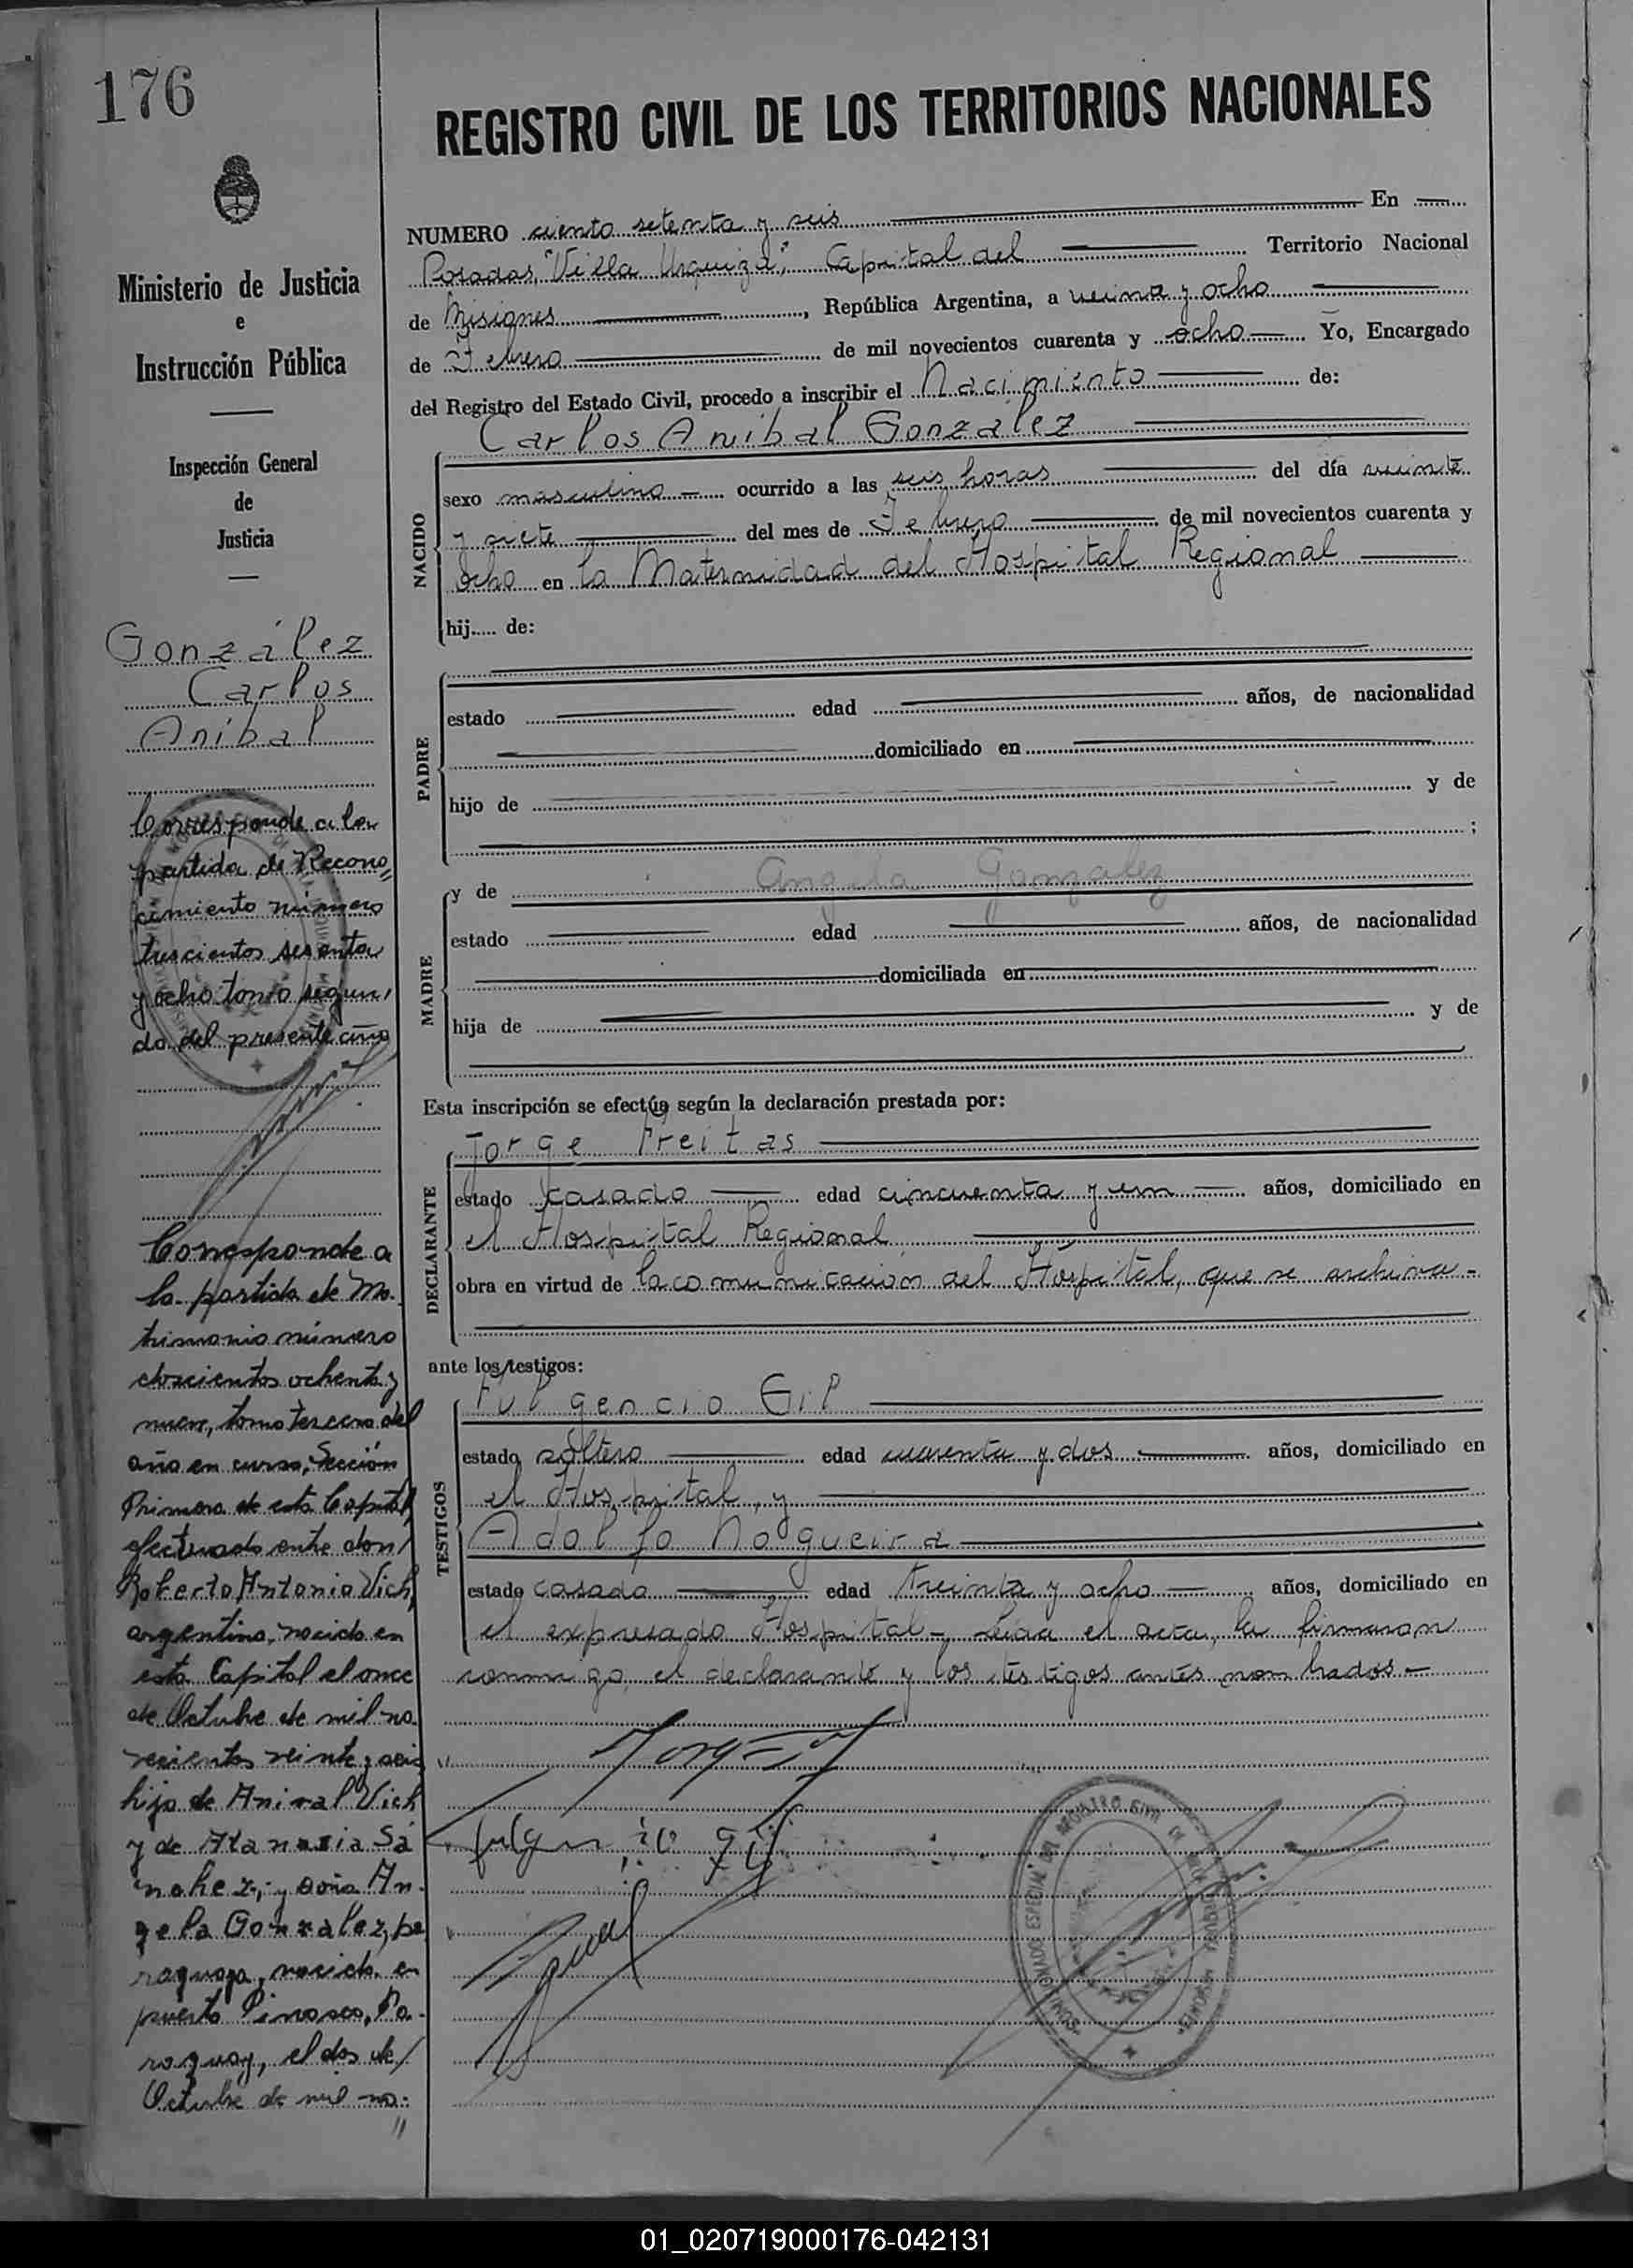 176
REGISTRO CIVIL DE LOS TERRITORIOS NACIONALES
Ministerio de Justicia
e
Instrucción Pública
Inspección General
de
Justicia
González
Carlos
Aníbal
Corresponde a la
partida de Recono
cimiento número
trescientos sesenta
y ocho tomo segun
do del presente año
Corresponde a
la partida de Ma
trimonio número
doscientos ochenta y
nueve, tomo tercero del
año en curso, Sección
Primera de esta Capital,
efectuado entre don
Roberto Antonio Vich,
argentino, nacido en
esta Capital el once
de Octubre de mil no
vecientos veinte y seis
hijo de Anival Vich
y de Atanasia Sá
nchez; y doña An
gela Gonzalez, pa
raguaya, nacida en
puerto Pinasco, Pa
raguay, el dos de
Octubre de mil no
NUMERO ciento setenta y seis En
Posadas, "Villa Urquiza", Capital del Territorio Nacional
de Misiones, República Argentina, a veinte y ocho
de Febrero de mil novecientos cuarenta y ocho Yo, Encargado
del Registro del Estado Civil, procedo a inscribir el Nacimiento de:
Carlos Anibal González
NACIDO
sexo masculino ocurrido a las seis horas del día veinte
y siete del mes de Febrero de mil novecientos cuarenta y
ocho en la Maternidad del Hospital Regional
hij..... de:
PADRE
estado edad años, de nacionalidad
domiciliado en
hijo de y de
;
MADRE
y de Angela Gonzalez
estado edad años, de nacionalidad
domiciliada en
hija de y de
Esta inscripción se efectúa según la declaración prestada por:
DECLARANTE
Jorge Freitas
estado casado edad cincuenta y un años, domiciliado en
el Hospital Regional
obra en virtud de la comunicación del Hospital, que se archiva-
ante los testigos:
TESTIGOS
Fulgencio Gil
estado soltero edad cuarenta y dos años, domiciliado en
el Hospital, y
Adolfo Nogueira
estado casado edad treinta y ocho años, domiciliado en
el expresado Hospital- Leída el acta, la firmaron
conmigo, el declarante y los testigos antes nombrados-
Fulgencio Gil
01_020719000176-042131